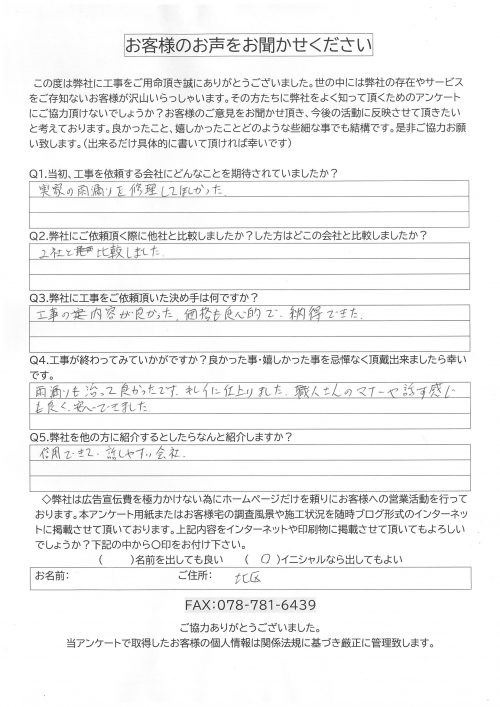 お客様のお声をお聞かせください
この度は弊社に工事をご用命頂き誠にありがとうございました。世の中には弊社の存在やサービス
をご存知ないお客様が沢山いらっしゃいます。その方たちに弊社をよく知って頂くためのアンケート
にご協力頂けないでしょうか?お客様のご意見をお聞かせ頂き、今後の活動に反映させて頂きたい
と考えております。良かったこと、嬉しかったことどのような些細な事でも結構です。是非ご協力お願
い致します。(出来るだけ具体的に書いて頂ければ幸いです)
Q1.当初、工事を依頼する会社にどんなことを期待されていましたか?
実家の雨漏りを修理してほしかった。
Q2.弊社にご依頼頂く際に他社と比較しましたか?した方はどこの会社と比較しましたか?
2社と比較しました。
Q3.弊社に工事をご依頼頂いた決め手は何ですか?
工事の内容が良かった。価格も良心的で、納得できた。
Q4.工事が終わってみていかがですか?良かった事・嬉しかった事を忌憚なく頂戴出来ましたら幸い
です。
雨漏りも治って良かったです。キレイに仕上りました。職人さんのマナーや話す感じ
も良く、安心できました。
Q5.弊社を他の方に紹介するとしたらなんと紹介しますか?
信用できて、話しやすい会社。
◇弊社は広告宣伝費を極力かけない為にホームページだけを頼りにお客様への営業活動を行って
おります。本アンケート用紙またはお客様宅の調査風景や施工状況を随時ブログ形式のインターネッ
トに掲載させて頂いております。上記内容をインターネットや印刷物に掲載させて頂いてもよろしい
でしょうか?下記の中から○印をお付け下さい。
( )名前を出しても良い ( ○ )イニシャルなら出してもよい
お名前: ご住所: 北区
FAX:078-781-6439
ご協力ありがとうございました。
当アンケートで取得したお客様の個人情報は関係法規に基づき厳正に管理致します。